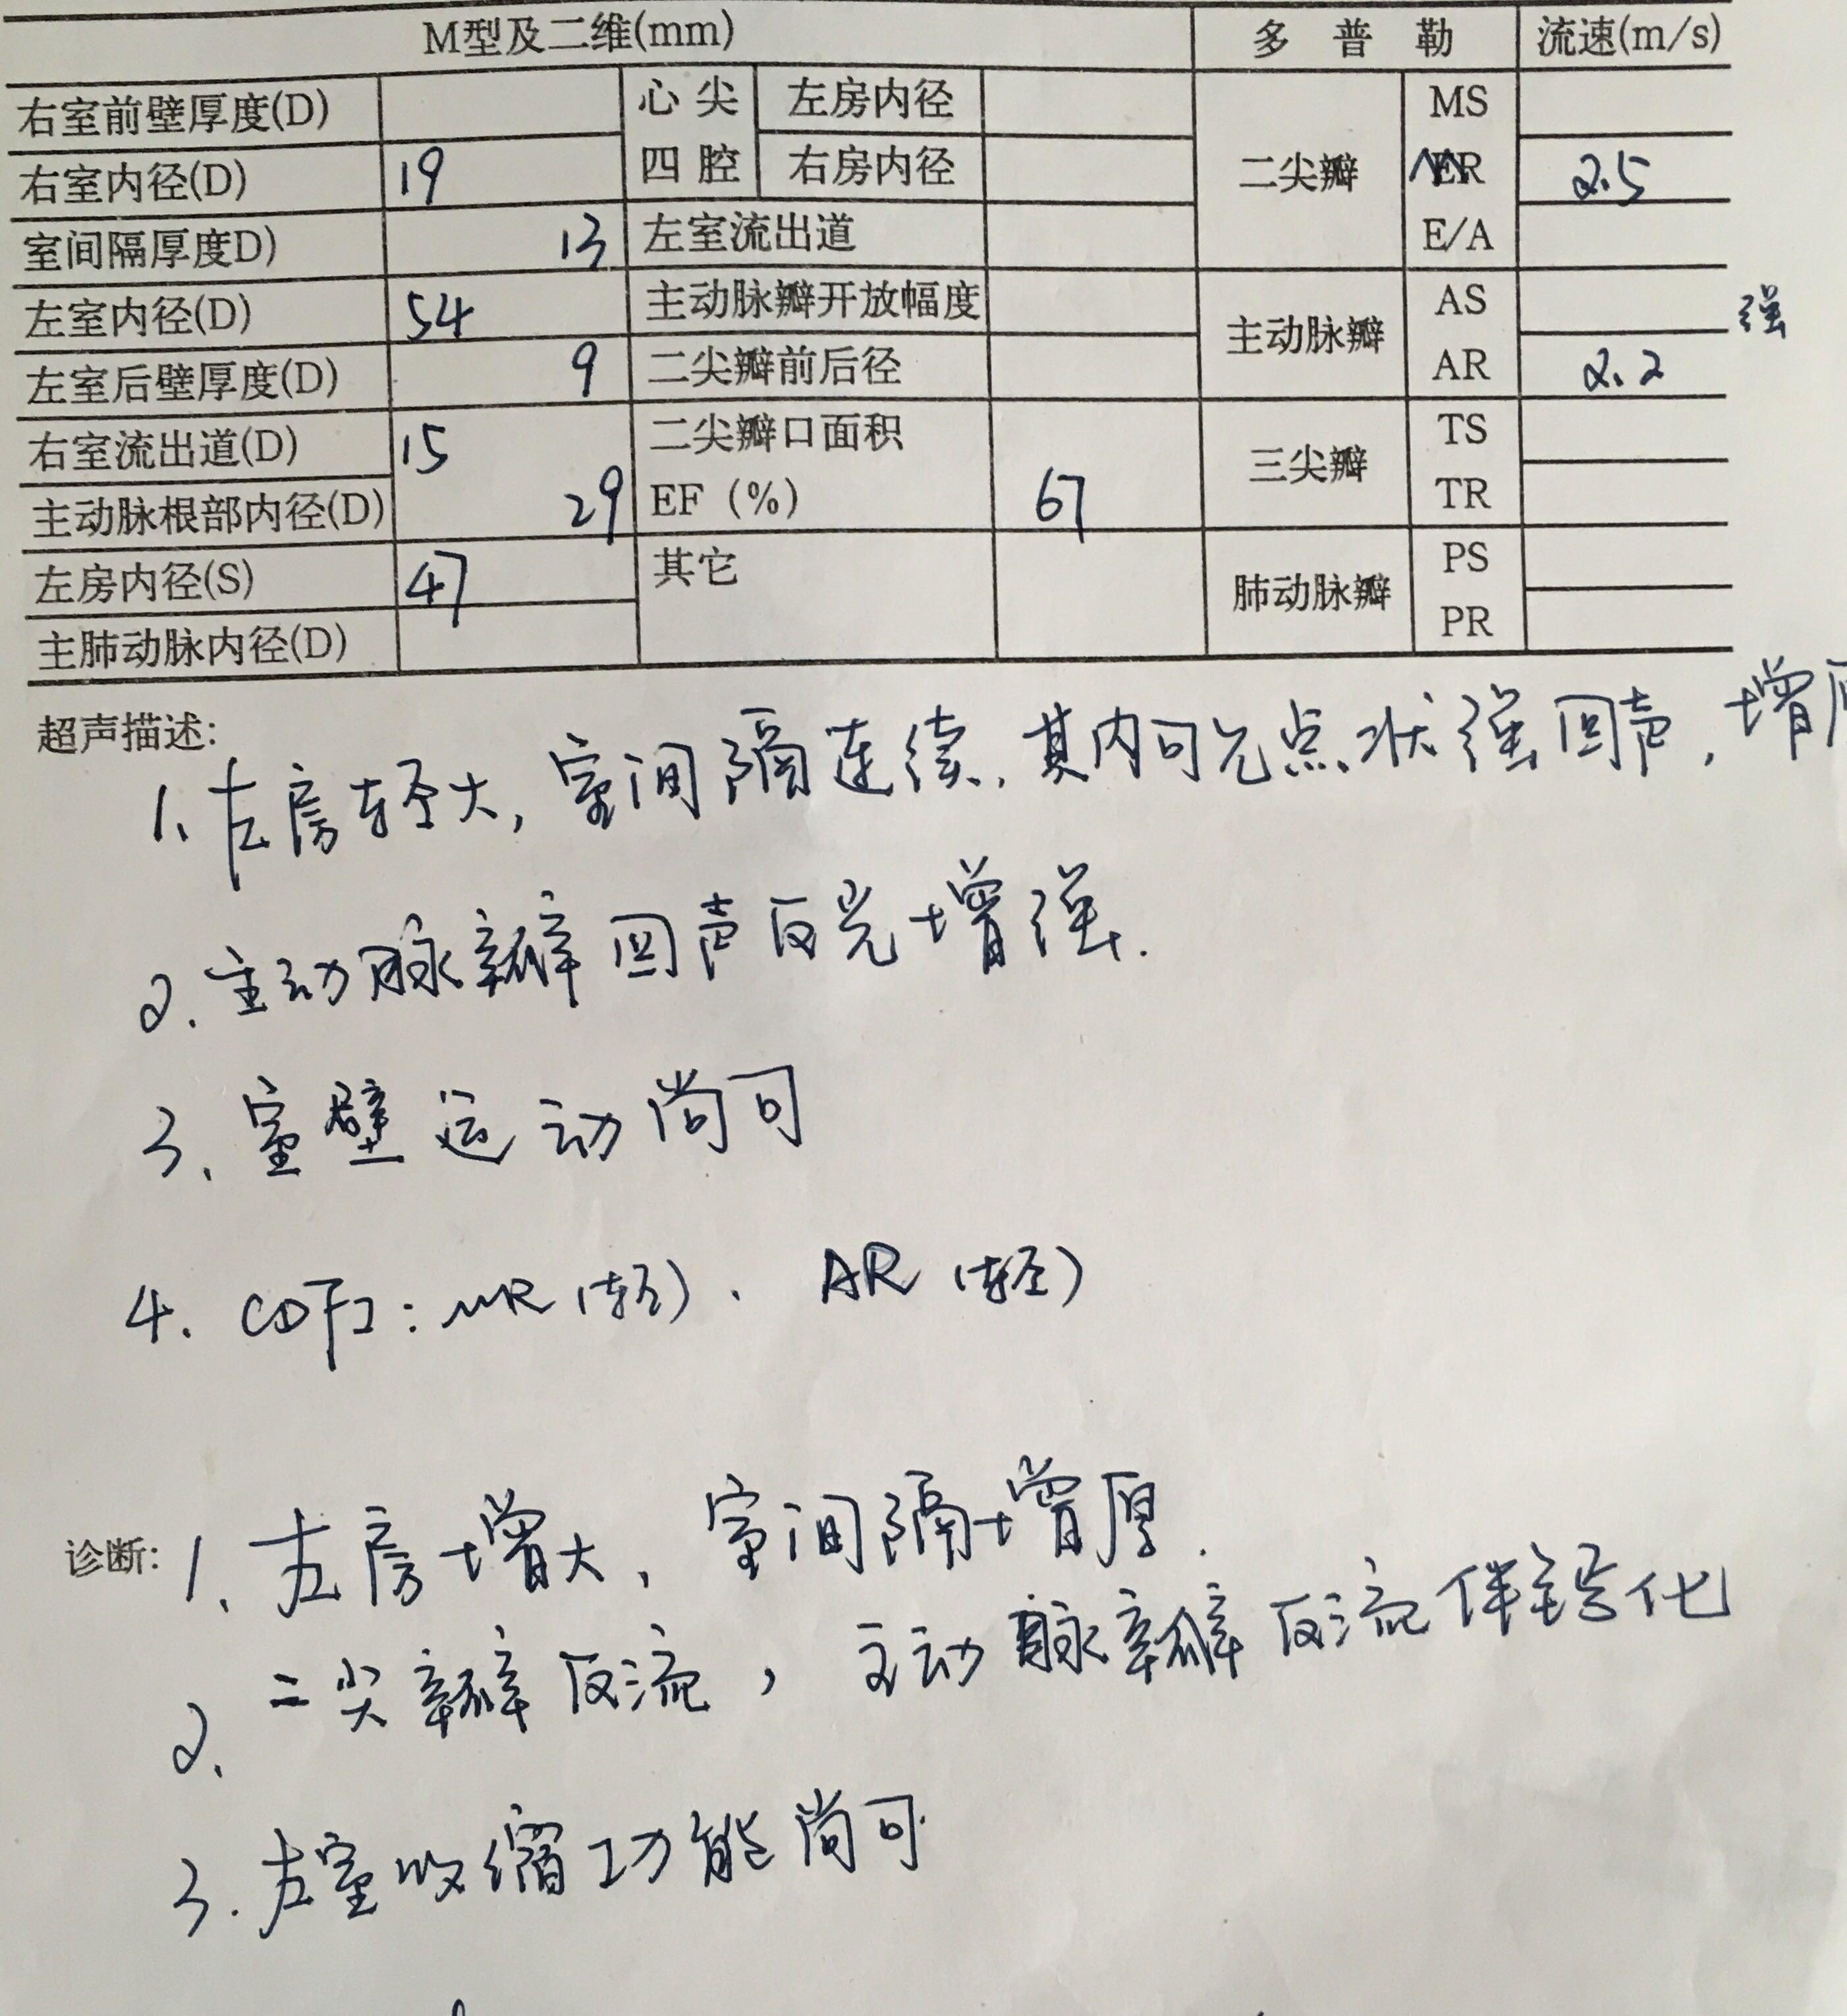 M型及二维(mm) 多普勒 流速(m/s)
右室前壁厚度(D) 心尖 左房内径 MS
右室内径(D) 19 四腔 右房内径 二尖瓣 MR 2.5
室间隔厚度D) 13 左室流出道 E/A
左室内径(D) 54 主动脉瓣开放幅度 AS 强
左室后壁厚度(D) 9 二尖瓣前后径 主动脉瓣 AR 2.2
右室流出道(D) 15 二尖瓣口面积 TS
主动脉根部内径(D) 29 EF (%) 67 三尖瓣 TR
左房内径(S) 47 其它 PS
主肺动脉内径(D) 肺动脉瓣 PR
超声描述:
1、左房轻大,室间隔连续,其内可见点状强回声,增厚
2.主动脉瓣回声反光增强.
3、室壁运动尚可
4. CDFI:MR(轻)、AR(轻)
诊断: 1、左房增大,室间隔增厚.
2、二尖瓣反流,主动脉瓣反流伴钙化
3.左室收缩功能尚可